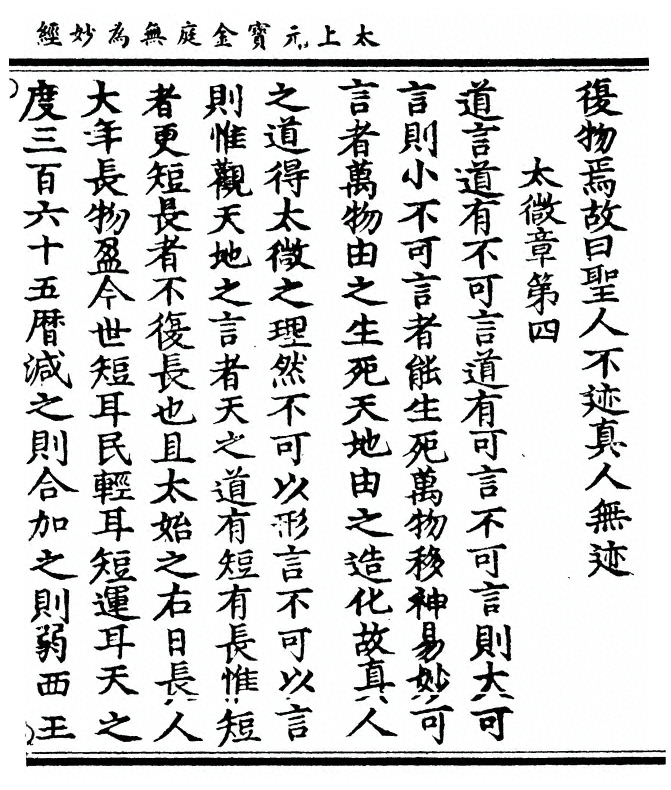 太上元寶金庭無為妙經
復物焉故曰聖人不迹真人無迹
太微章第四
道言道有不可言道有可言不可言則大可
言則小不可言者能生死萬物移神易妙可
言者萬物由之生死天地由之造化故真人
之道得太微之理然不可以形言不可以言
則惟觀天地之言者天之道有短有長惟短
者更短長者不復長也且太始之右日長人
大年長物盈今世短耳民輕耳短運耳天之
度三百六十五曆減之則合加之則弱西王